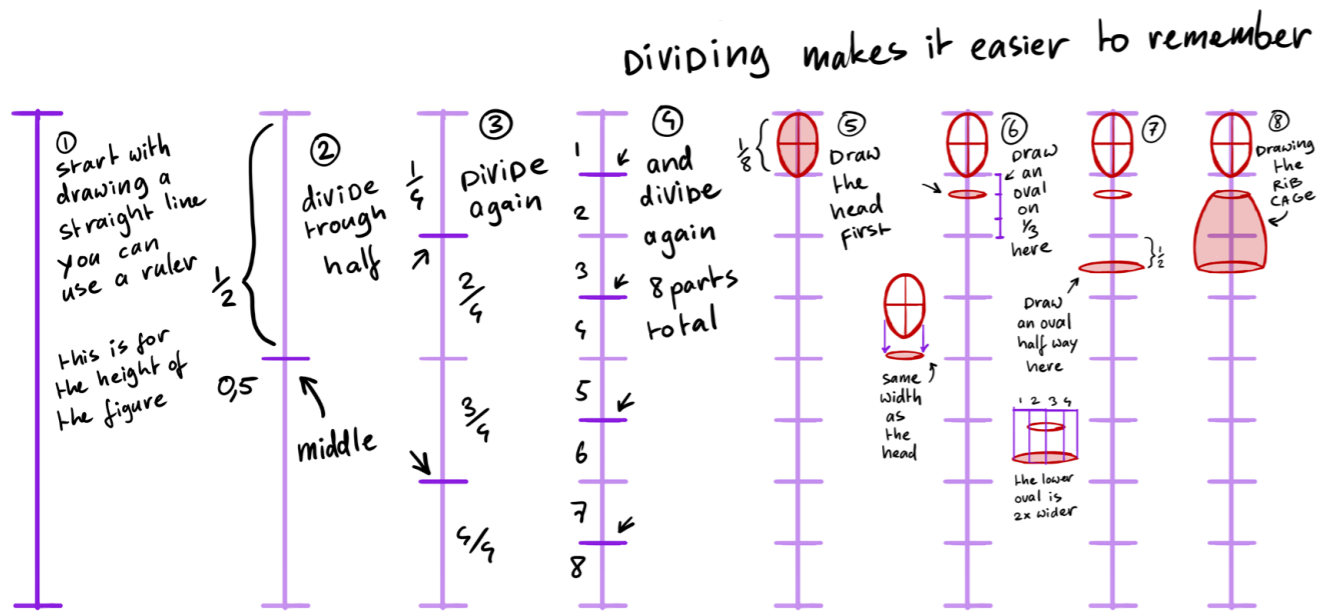 DiViDing makes it easier to remember
①
start with
drawing a
straight line
you can
use a ruler
this is for
the height of
the figure
1/2
0,5
②
divide
trough
half
middle
1/4
③
DiViDe
again
2/4
3/4
4/4
1
2
3
4
5
6
7
8
④
and
divide
again
8 parts
total
1/8
⑤
Draw
the
head
first
same
width
as
the
head
⑥
Draw
an
oval
on
1/3
here
⑦
1/2
Draw
an oval
half way
here
1 2 3 4
the lower
oval is
2x wider
⑧
Drawing
the
RiB
CAGE